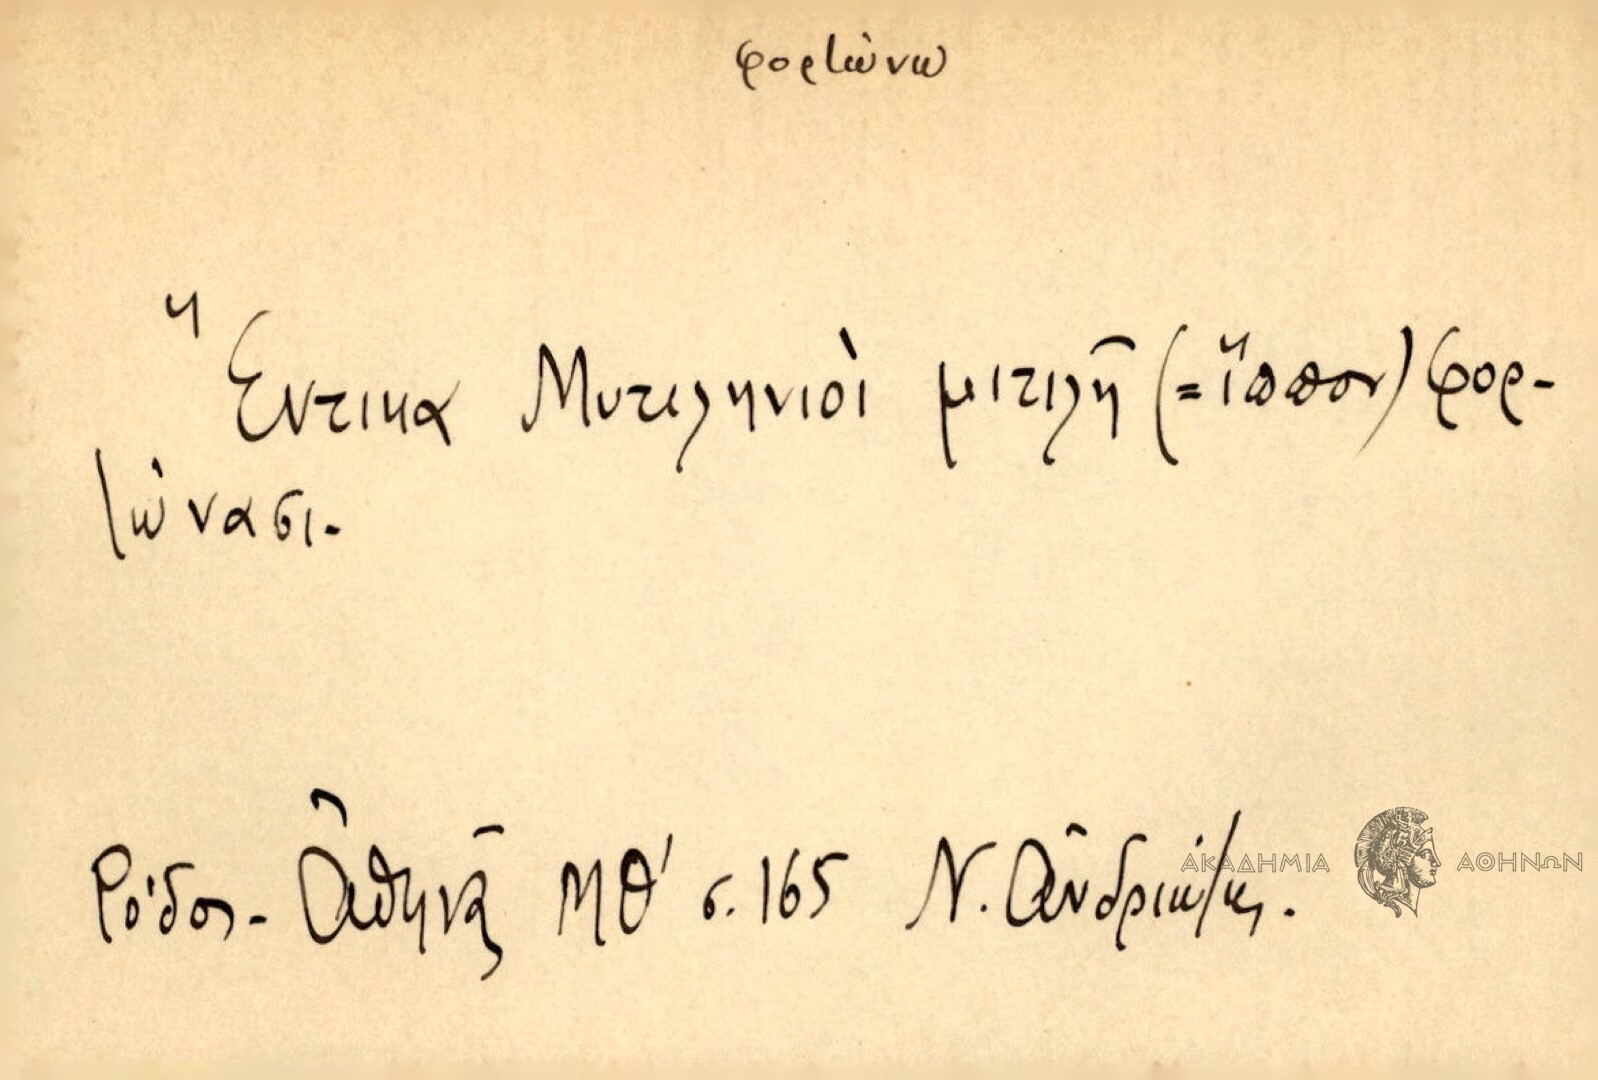 φορτώνω
Ἕντικα Μυτιληνιοὶ μιτιλῆ (=ἵππον) φορ-
τώνασι.
Ρόδος - Ἀθηνᾶ ΜΘ' σ. 165 Ν. Ἀνδριώτης.
ΑΚΑΔΗΜΙΑ ΑΘΗΝΩΝ